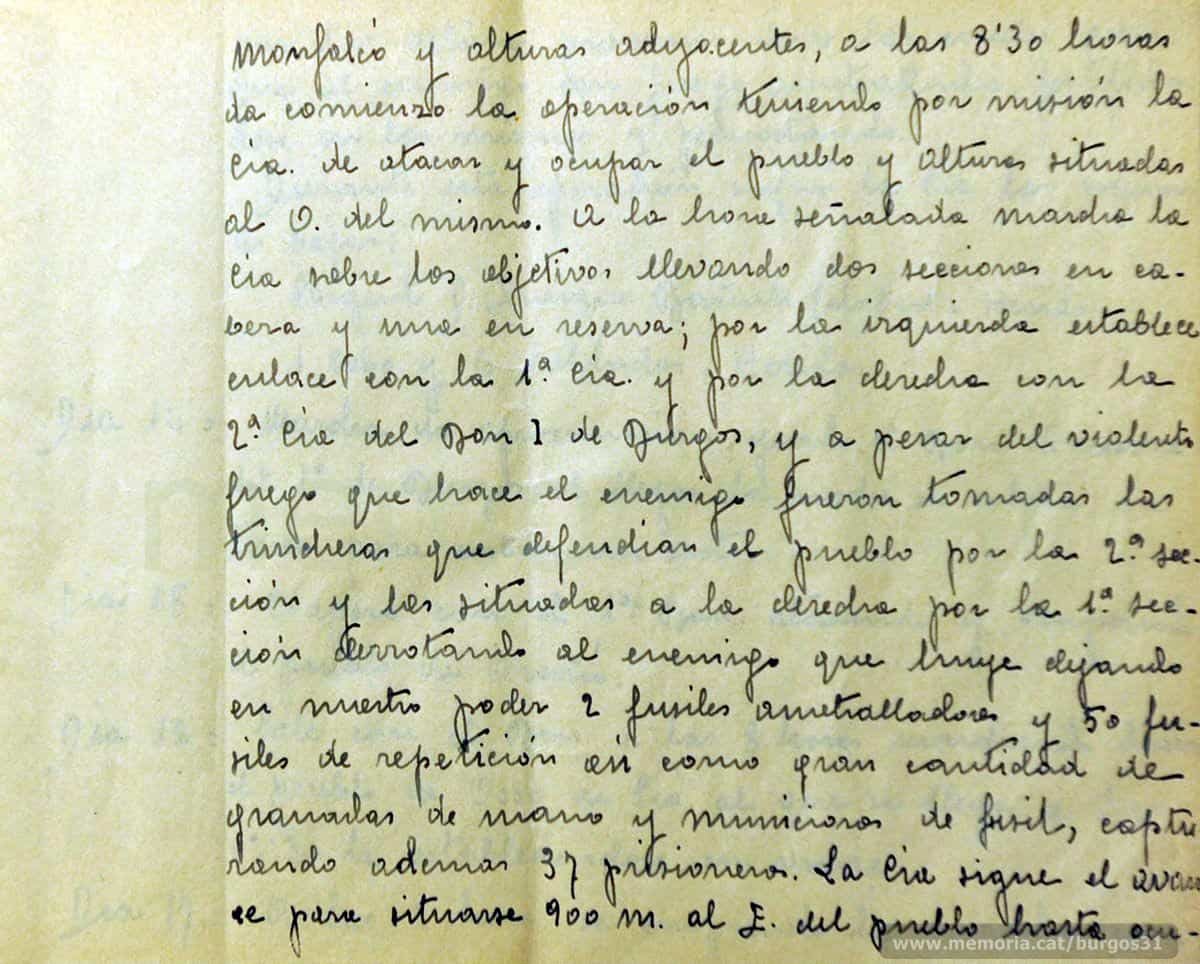 Monfalcó y alturas adyacentes, a las 8'30 horas
da comienzo la operación teniendo por misión la
Cía. de atacar y ocupar el pueblo y alturas situadas
al O. del mismo. A la hora señalada marcha la
Cía sobre los objetivos llevando dos secciones en ca-
beza y una en reserva; por la izquierda establece
enlace con la 1ª Cía. y por la derecha con la
2ª Cía del Bon I de Burgos, y a pesar del violento
fuego que hace el enemigo fueron tomadas las
trincheras que defendían el pueblo por la 2ª sec-
ción y las situadas a la derecha por la 1ª sec-
ción derrotando al enemigo que huye dejando
en nuestro poder 2 fusiles ametralladores y 50 fu-
siles de repetición así como gran cantidad de
granadas de mano y municiones de fusil, captu
rando ademas 37 prisioneros. La Cía sigue el avan
ce para situarse 900 m. al E. del pueblo hasta ocu-
www.memoria.cat/burgos31